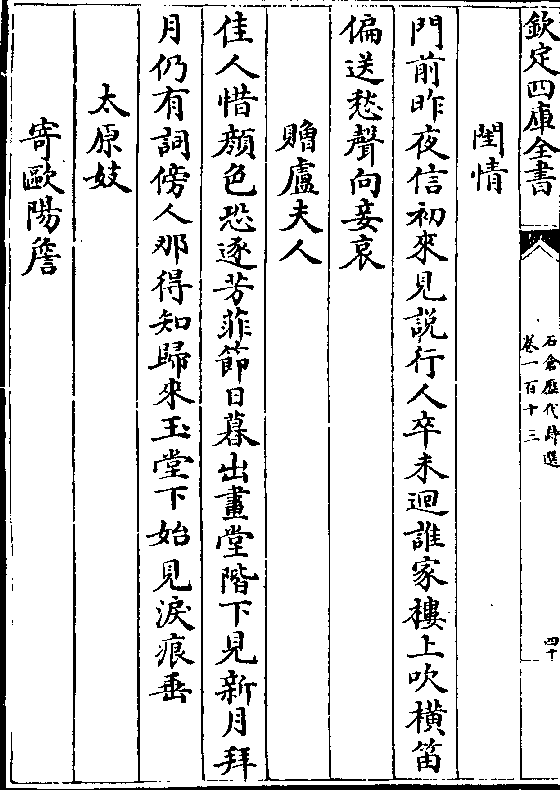 欽定四庫全書
石倉歷代詩選
卷一百十三
四十
閨情
門前昨夜信初來見説行人卒未迴誰家樓上吹橫笛
偏送愁聲向妾哀
贈盧夫人
佳人惜顔色恐逐芳菲節日暮出畫堂階下見新月拜
月仍有詞傍人那得知歸來玉堂下始見淚痕垂
太原妓
寄歐陽詹